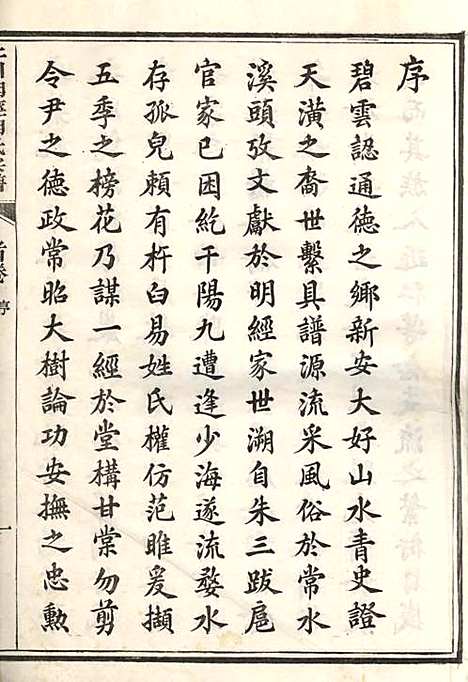 序
碧雲認通德之鄉新安大好山水青史證
天潢之裔世繫具譜源流采風俗於常水
溪頭攷文獻於明經家世溯自朱三跋扈
官家已困紇干陽九遭逢少海遂流婺水
存孤兒賴有杵臼易姓氏權仿范雎爰擷
五季之榜花乃謀一經於堂構甘棠勿剪
令尹之德政常昭大樹論功安撫之忠勳
首卷 序 一